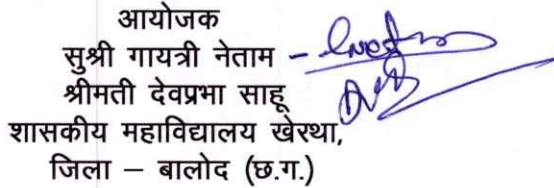 आयोजक
सुश्री गायत्री नेताम –
श्रीमती देवप्रभा साहू
शासकीय महाविद्यालय खेरथा,
जिला – बालोद (छ.ग.)